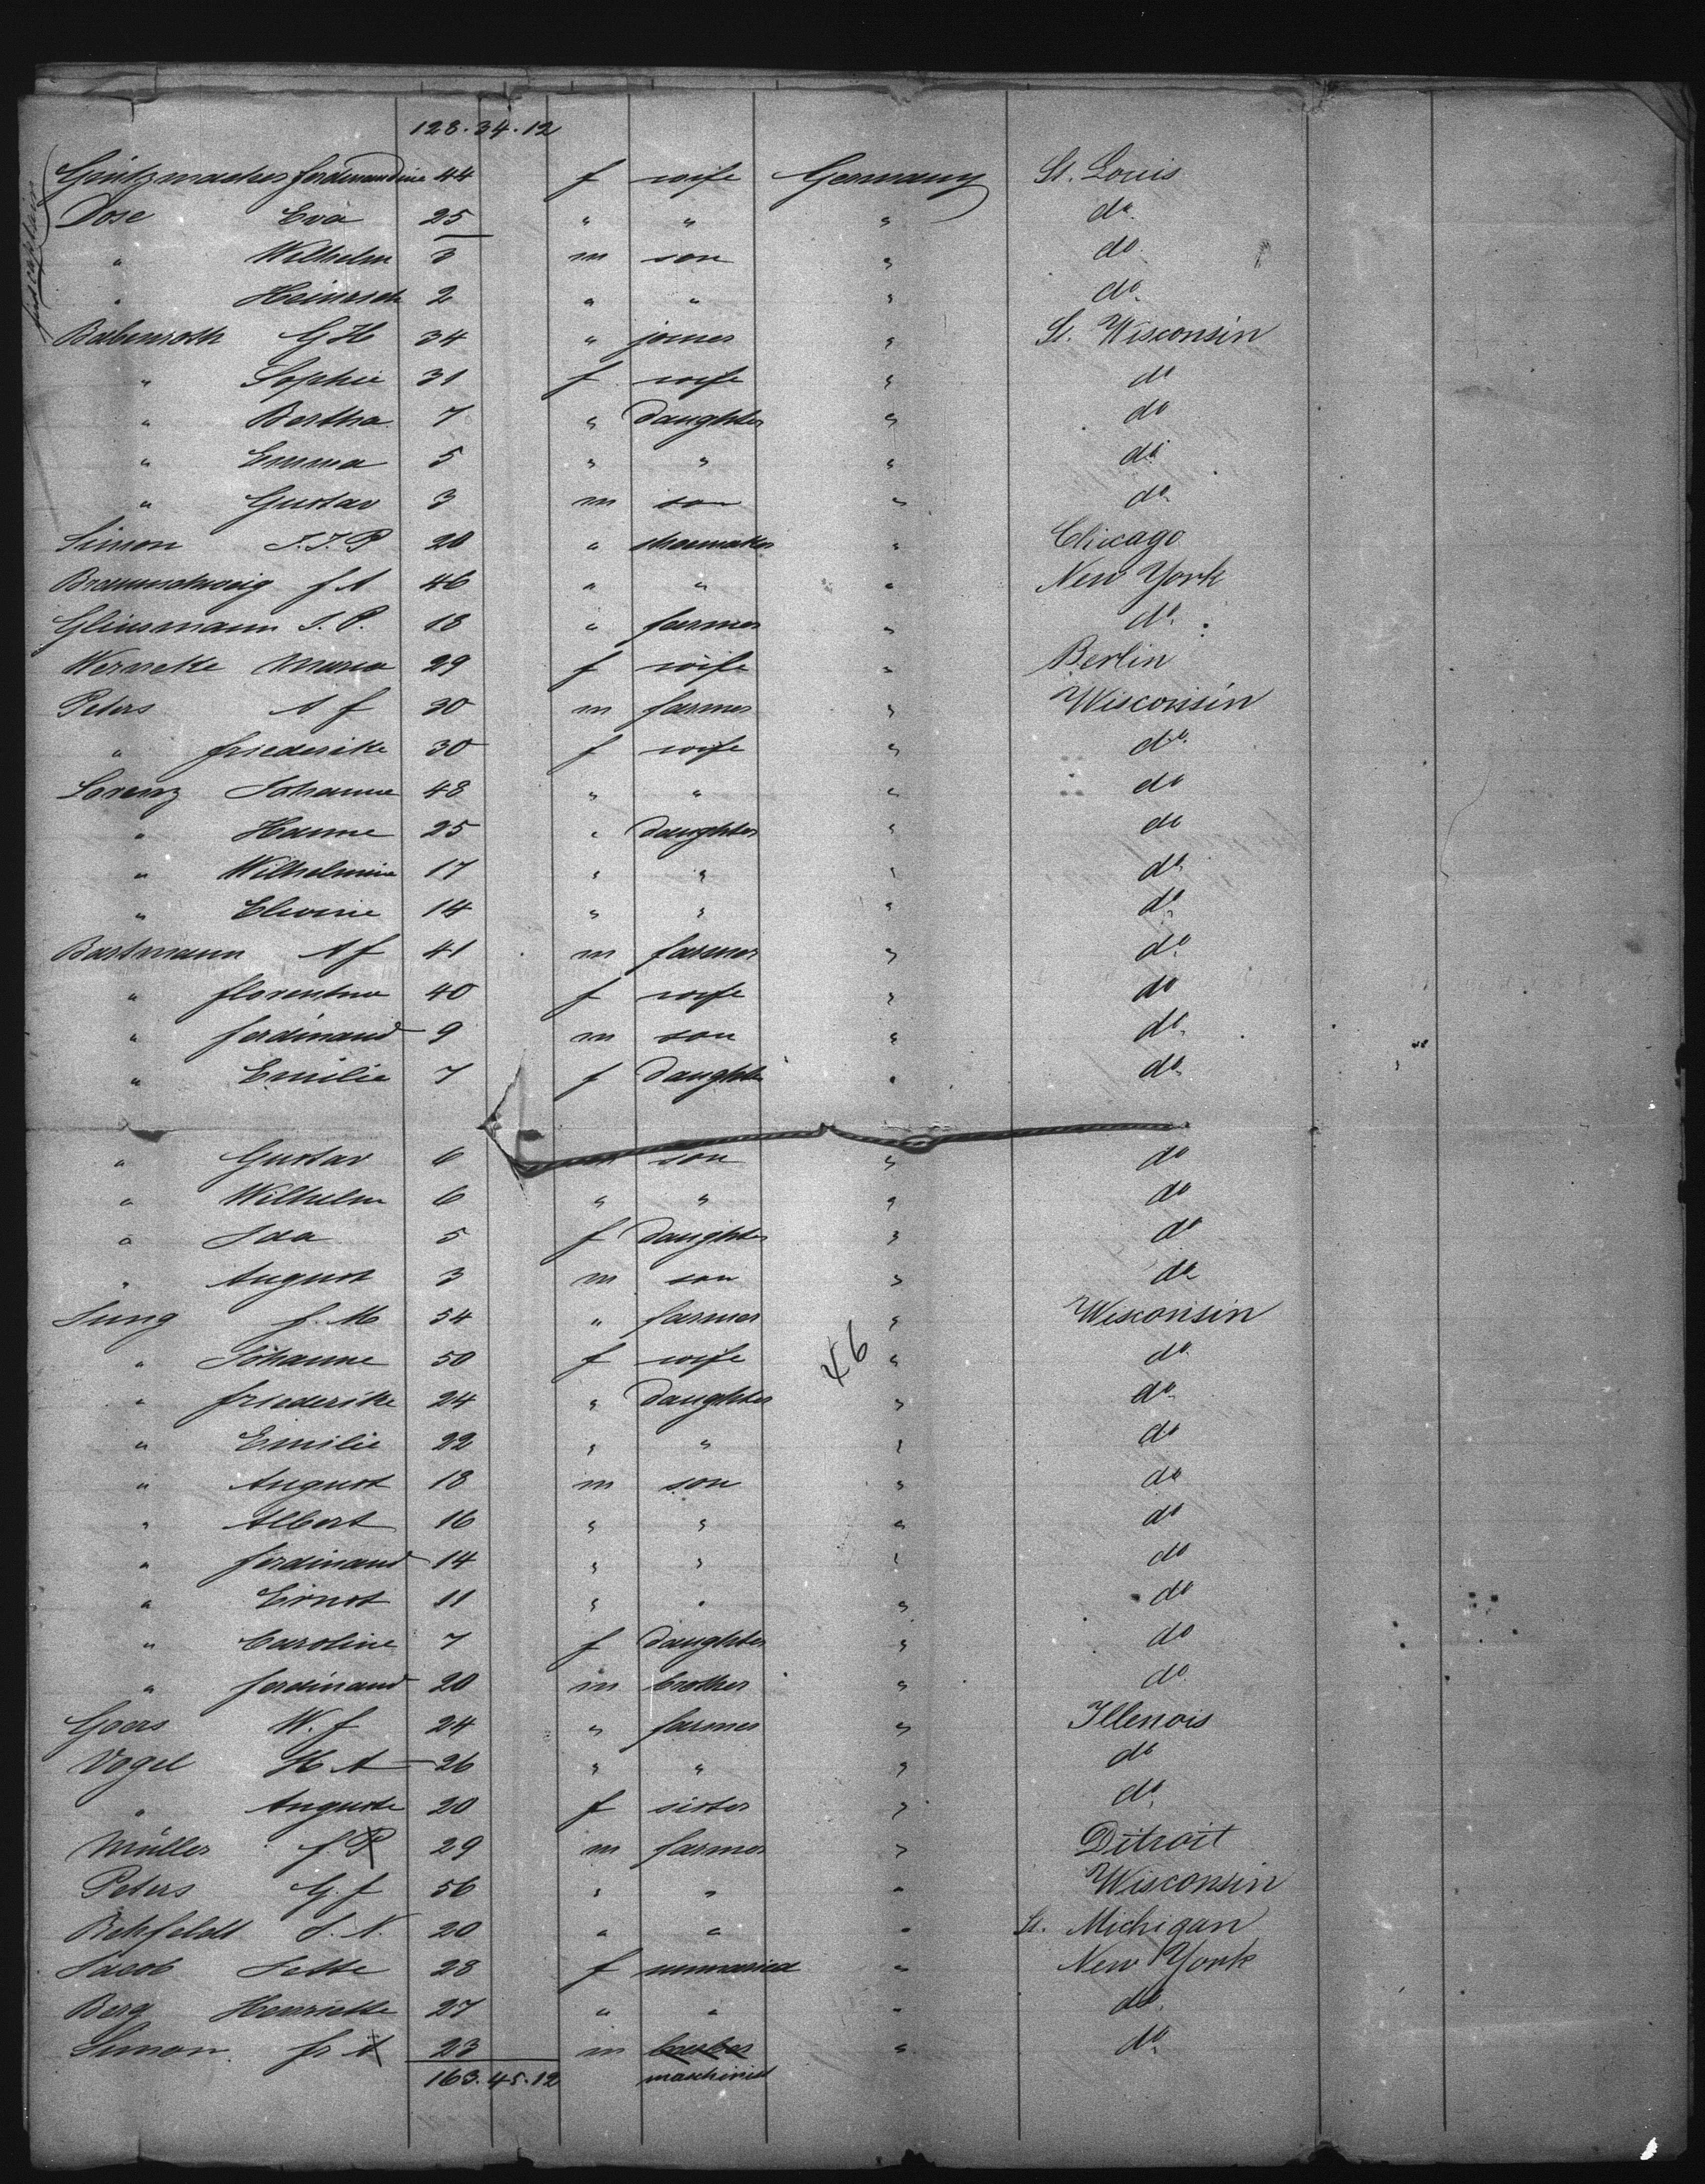 128. 34. 12
Ferdinandine 44 f wife Germany St. Louis
Dose Eva 25 " " " do.
" Wilhelm 3 m son " do
" Heinrich 2 " " " do.
Babenroth G H 34 " joiner " St. Wisconsin
" Sophie 31 f wife " do
" Bertha 7 " daughter " do
" Emma 5 " " " do
" Gustav 3 m son " do.
Simon J. J. P 20 " shoemaker " Chicago
Braunschweig f A 46 " " " New York
Glinsmann J. P. 18 " farmer " do.
Wernecke Maria 29 f wife " Berlin
Peters A f 30 m farmer " Wisconsin
" friederike 30 f wife " do.
Lorenz Johanne 48 " " " do
" Hanne 25 " daughter " do
" Wilhelmine 17 " " " do.
" 14 " " " do.
Bartmann A f 41 m farmer " do.
" florentine 40 f wife " do
" ferdinand 9 m son " do.
" Emilie 7 f daughter " do.
" Gustav 6 m son " do
" Wilhelm 6 " " " do
" Ida 5 f daughter " do
" August 3 m son " do
Jung f. M 54 " farmer " Wisconsin
" Johanne 50 f wife 46 " do.
" friederike 24 " daughter " do.
" Emilie 22 " " " do
" August 18 m son " do
" Albert 16 " " " do
" ferdinand 14 " " " do
" Ernst 11 " " " do
" Caroline 7 f daughter " do
" ferdinand 20 m brother " do.
Goers W. f 24 " farmer " Illenois
Vogel H A 26 " " " do
" Auguste 20 f sister " do.
Müller f P 29 m farmer " Ditroit
Peters G. f 56 " " " Wisconsin
J. N. 20 " " " St. Michigan
Jacob Jette 28 f unmaried " New York
Berg Henriette 27 " " " do.
Simon fr A 23 m barber " do.
163. 45. 12 maschinist